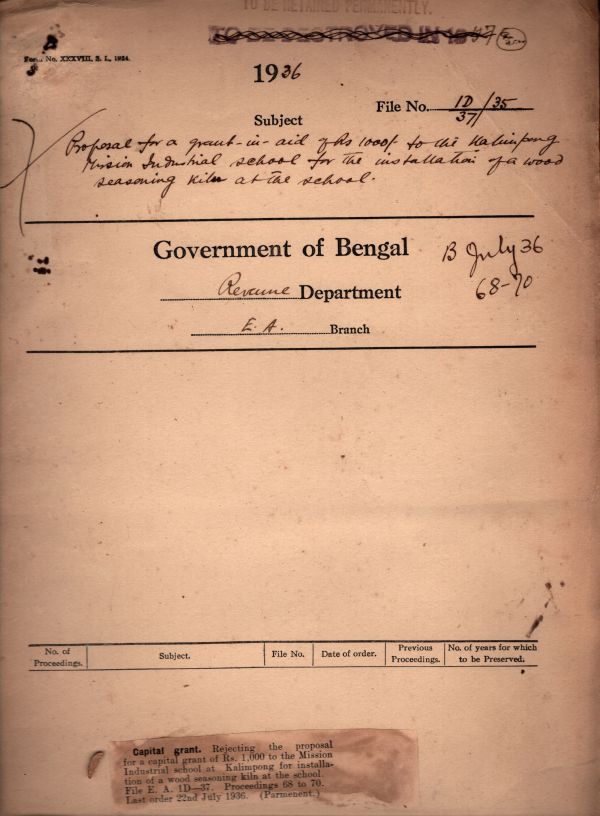 TO BE RETAINED PERMANENTLY.
TO BE DESTROYED IN 1947
Form No. XXXVIII, S. I., 1934.
1936
File No. 1D/37/35
Subject
Proposal for a grant-in-aid of Rs 1000/- to the Kalimpong
Mission Industrial school for the installation of a wood
seasoning kiln at the school.
Government of Bengal
B July 36
68-70
Revenue Department
E. A. Branch
No. of Proceedings. Subject. File No. Date of order. Previous Proceedings. No. of years for which to be Preserved.
Capital grant. Rejecting the proposal
for a capital grant of Rs. 1,000 to the Mission
Industrial school at Kalimpong for installa-
tion of a wood seasoning kiln at the school.
File E. A. 1D—37. Proceedings 68 to 70.
Last order 22nd July 1936. (Parmenent.)